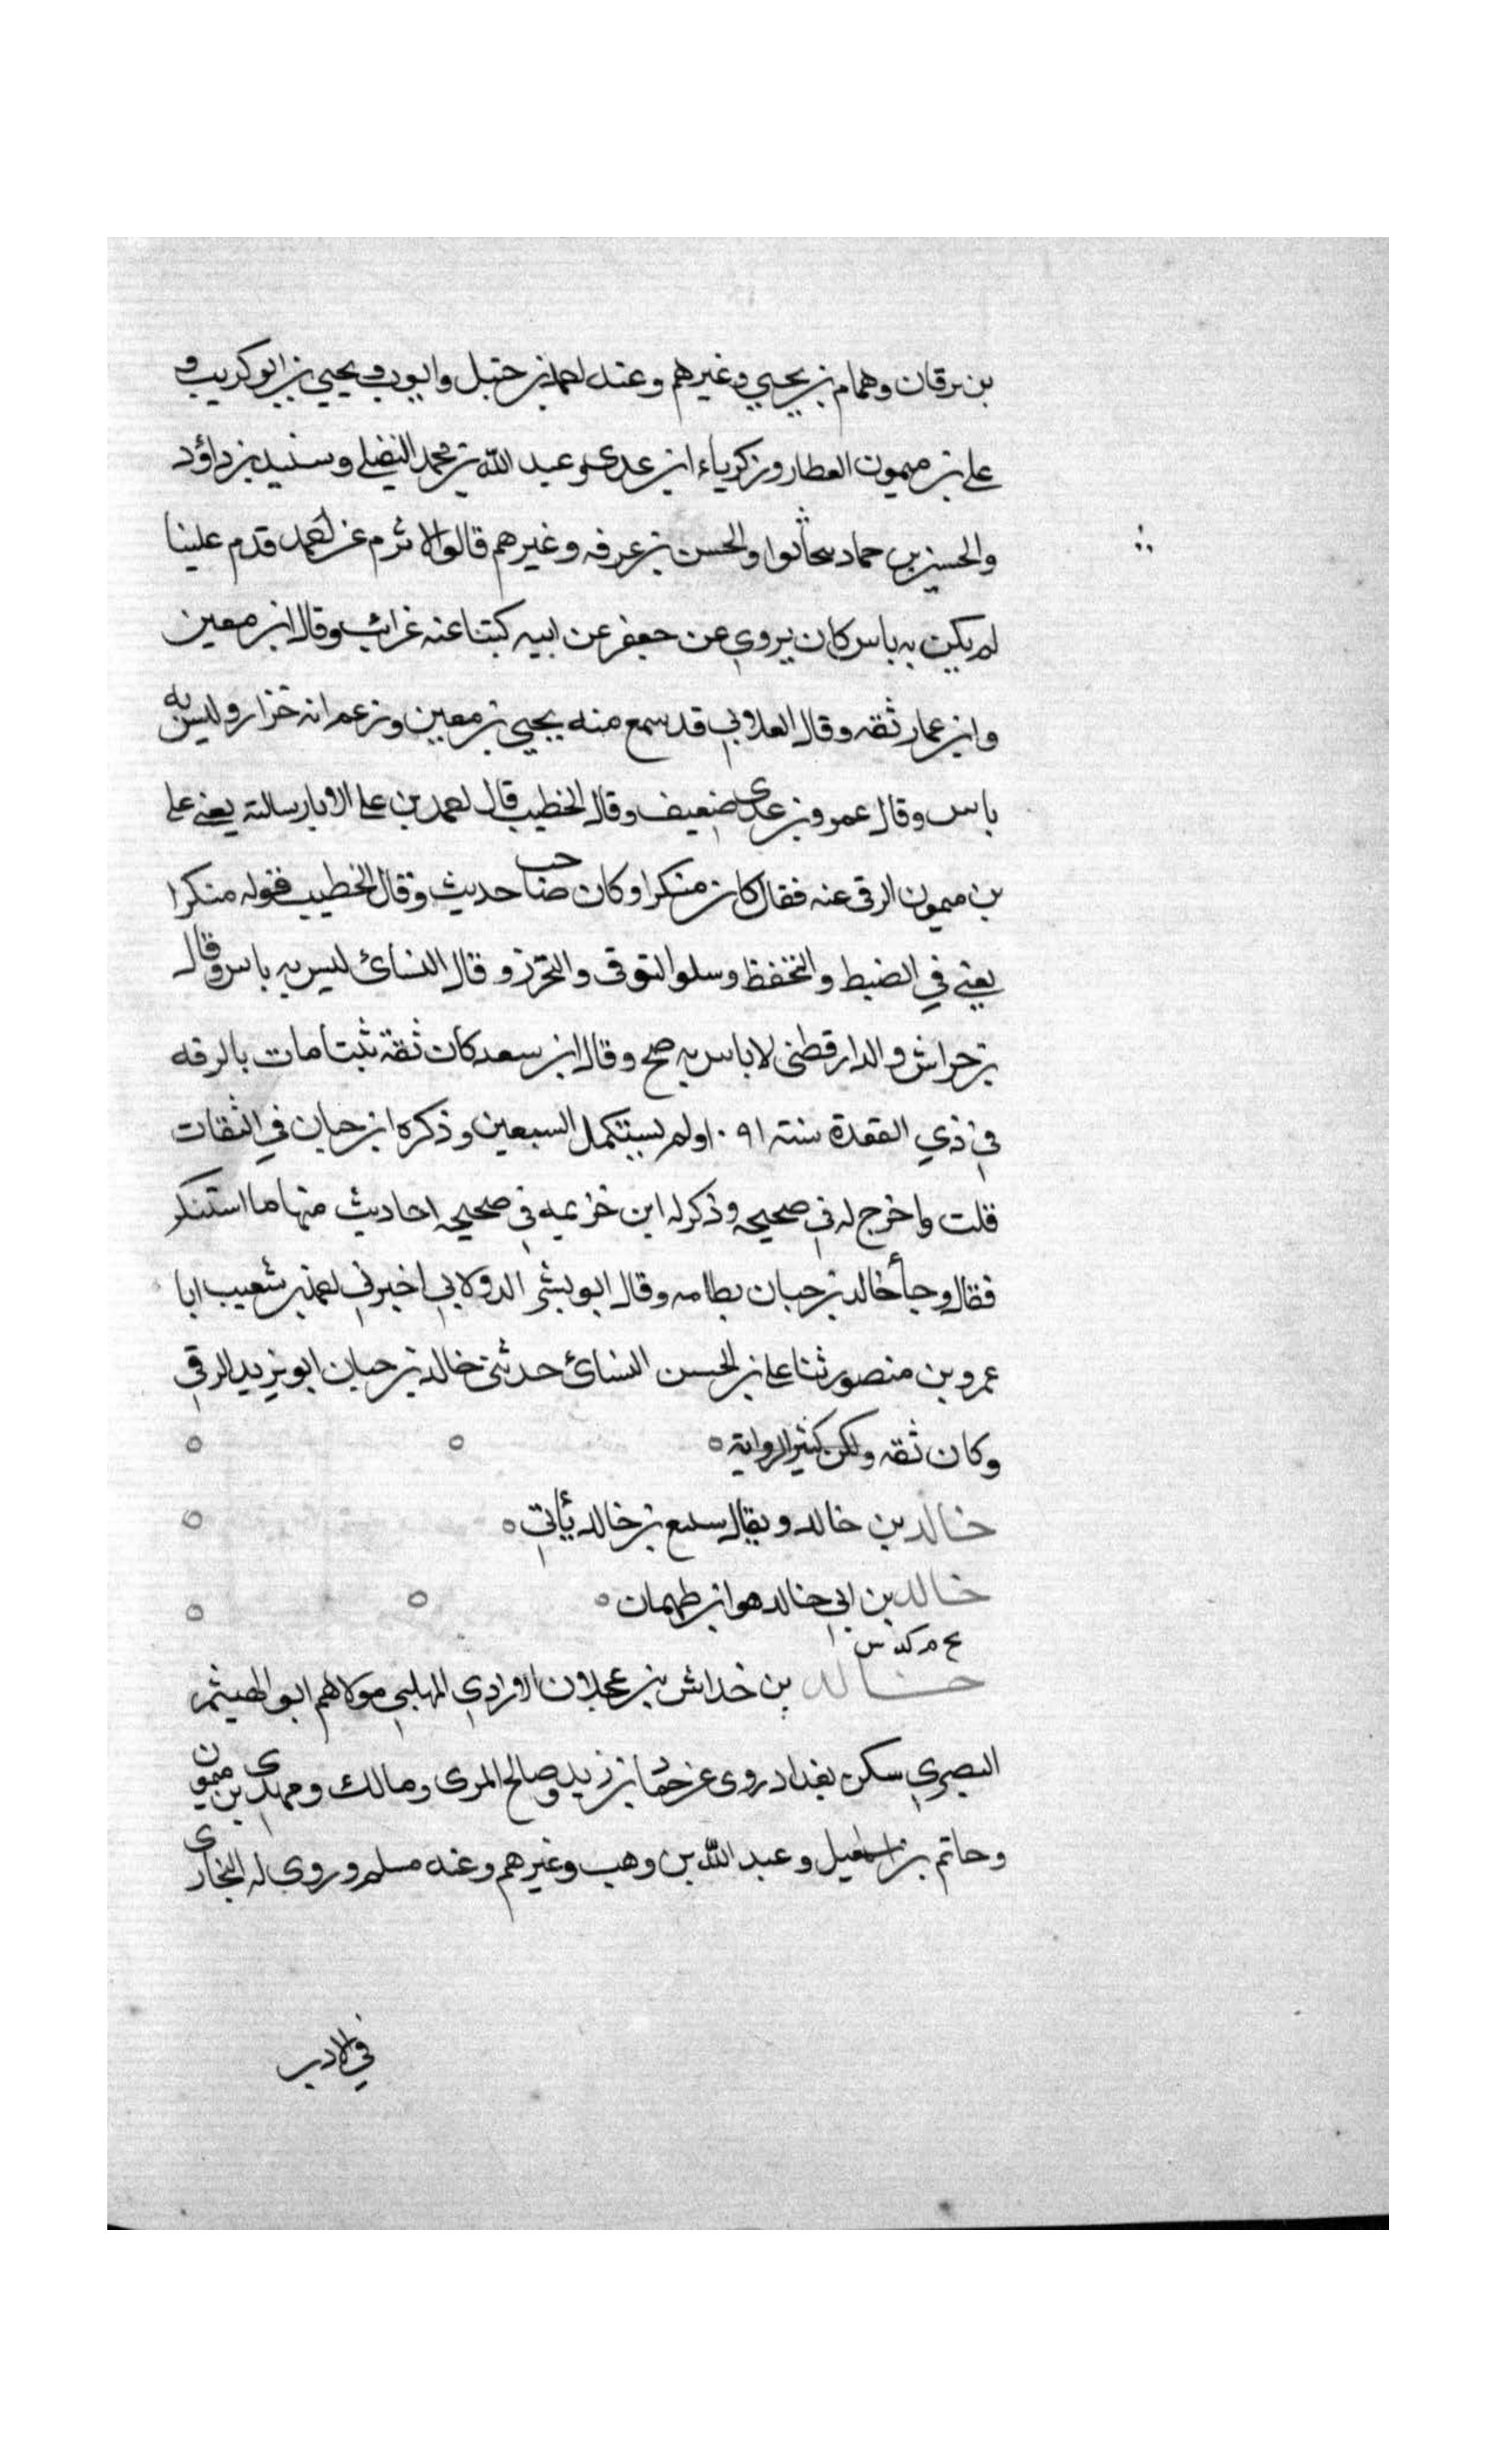 بن برقان وهمام بن يحيي وغيرهم وعنه احمد بن حنبل وايوب ويحيي بن ابو كريب و
علي بن ميمون العطار وزكرياء ابن عدى وعبد الله بن محمد النفيلي وسنيد بن داؤد
والحسين بن حماد والحسن بن عرفه وغيرهم قالوا الاثرم عن احمد قدم علينا
لم يكن به باس كان يروي عن جعفر عن ابيه كتبنا عنه غرائب وقال ابن معين
وابن عمار ثقه وقال العلاوبي قد سمع منه يحيي بن معين وزعم انه خزار وليس به
باس وقال عمرو بن عدى ضعيف وقال الخطيب قال احمد بن علي الابار سالته يعني علي
بن ميمون الرقى عنه فقال كان منكرا وكان صاحب حديث وقال الخطيب قوله منكرا
يعني في الضبط والتحفظ وسلو التوقى والتحرز وقال النسائ ليس به باس وقال
بن خراش والدارقطنى لا باس به صح وقال ابن سعد كان ثقة ثبتا مات بالرقه
في ذي القعدة سنة ١٠٩١ ولم يستكمل السبعين وذكره ابن حبان في الثقات
قلت واخرج له في صحيحه وذكر له ابن خزيمه في صحيحه احاديث منها ما استنكر
فقال وجأ خالد بن حبان بطامه وقال ابو بشر الدولابي اخبرني احمد بن شعيب ابا
عمرو بن منصور ثنا علي بن الحسن النسائ حدثنى خالد بن حبان ابو يزيد الرقي
وكان ثقه ولكن كثير الرواية
خالد بن خالد ويقال سبيع بن خالد يأتي
خالد بن ابي خالد هو ابن طهمان
خ م كد س
خالد بن خداش بن عجلان الازدي المهلبي مولاهم ابو الهيثم
البصري سكن بغداد روى عن حماد بن زيد وصالح المرى ومالك ومهدى بن ميمون
وحاتم بن اسمعيل وعبد الله بن وهب وغيرهم وعنه مسلم وروي له البخارى
في الادب